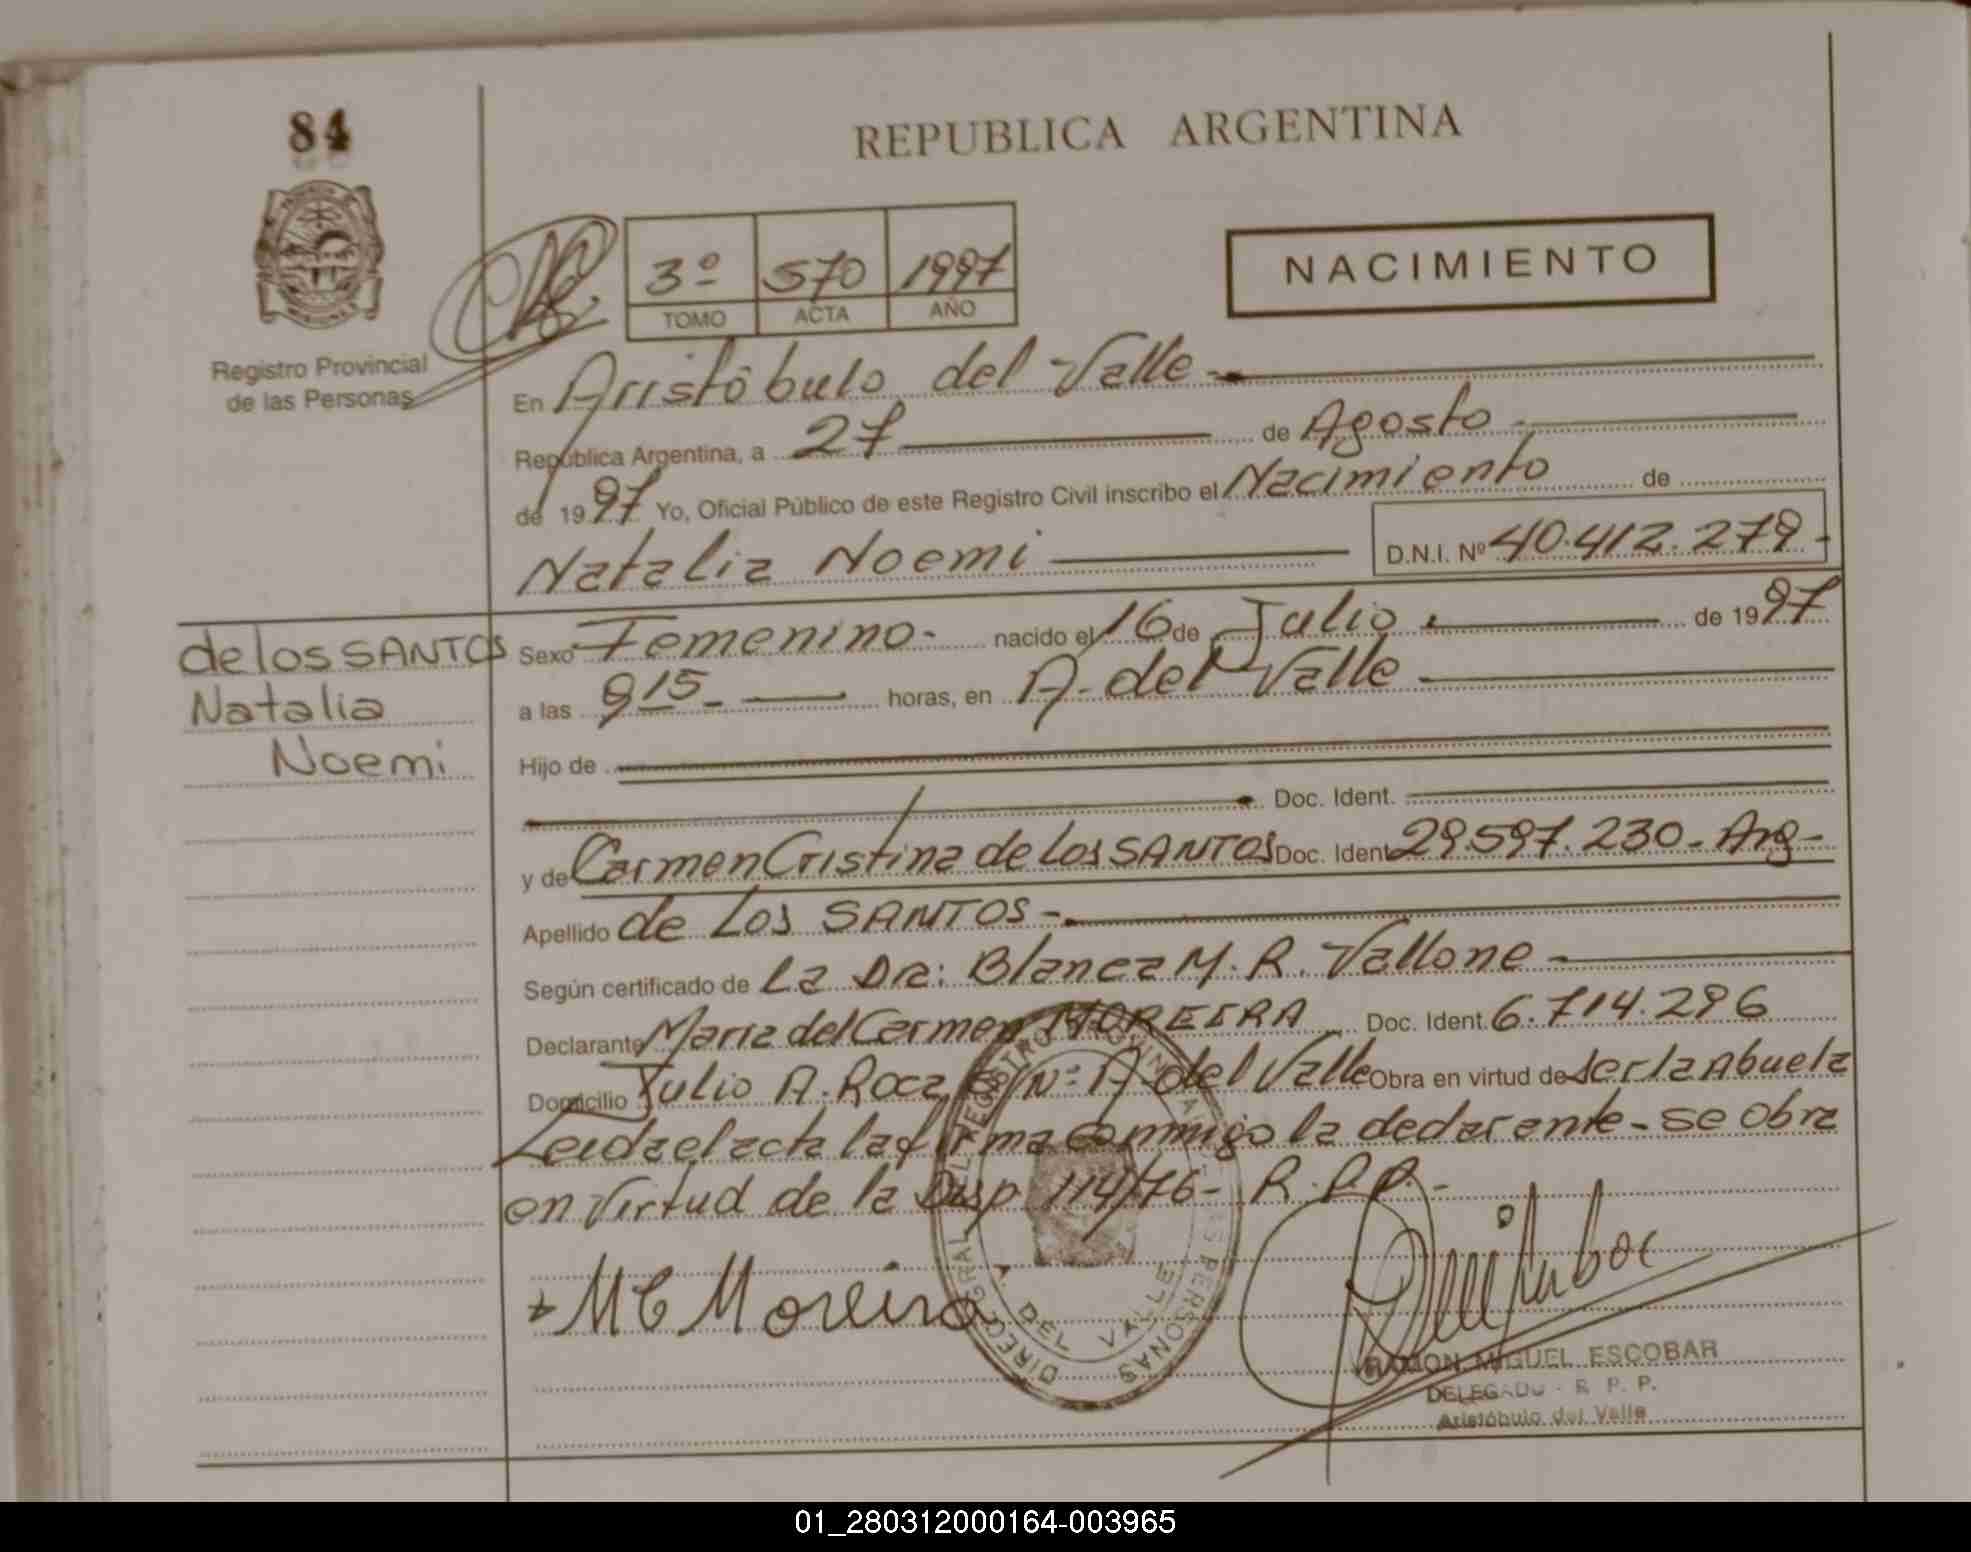 84
REPUBLICA ARGENTINA
Registro Provincial
de las Personas
3º 570 1997
TOMO ACTA AÑO
NACIMIENTO
En Aristóbulo del Valle
República Argentina, a 27 de Agosto
de 1997 Yo, Oficial Público de este Registro Civil inscribo el Nacimiento de
Natalia Noemi D.N.I. Nº 40.412.279-
de los SANTOS
Natalia
Noemi
Sexo Femenino- nacido el 16 de Julio de 1997
a las 915 horas, en A. del Valle
Hijo de
Doc. Ident.
y de Carmen Cristina de los SANTOS Doc. Ident 29.597.230- Arg-
Apellido de Los SANTOS-
Según certificado de La Dra: Blanca M. R. Vallone
Declarante Maria del Carmen MOREIRA Doc. Ident. 6.714.296
Domicilio Julio A. Roca S/Nº A. del Valle Obra en virtud de ser la Abuela
Leida el acta la firma conmigo la declarante- se obra
en Virtud de la Disp 114/76- R.P.P.-
MC Moreira
DEL VALLE
RAMON MIGUEL ESCOBAR
DELEGADO - R. P. P.
Aristóbulo del Valle
01_280312000164-003965